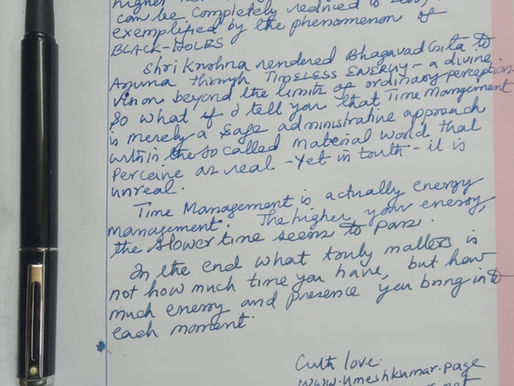 higher
can be completely reduced to zero
exemplified by the phenomenon of
BLACK-HOLES
Shri Krishna rendered Bhagavad Gita to
Arjuna through TIMELESS ENERGY - a divine
vision beyond the limits of ordinary perception
So what if I tell you that Time Mangement
is merely a safe administrative approach
within the so called material world that
perceive as real - yet in truth - it is
unreal.
Time Management is actually energy
management. The higher your energy,
the slower time seems to pass.
In the end what truly matters is
not how much time you have, but how
much energy and presence you bring into
each moment.
With love.
www.umeshkumar.page